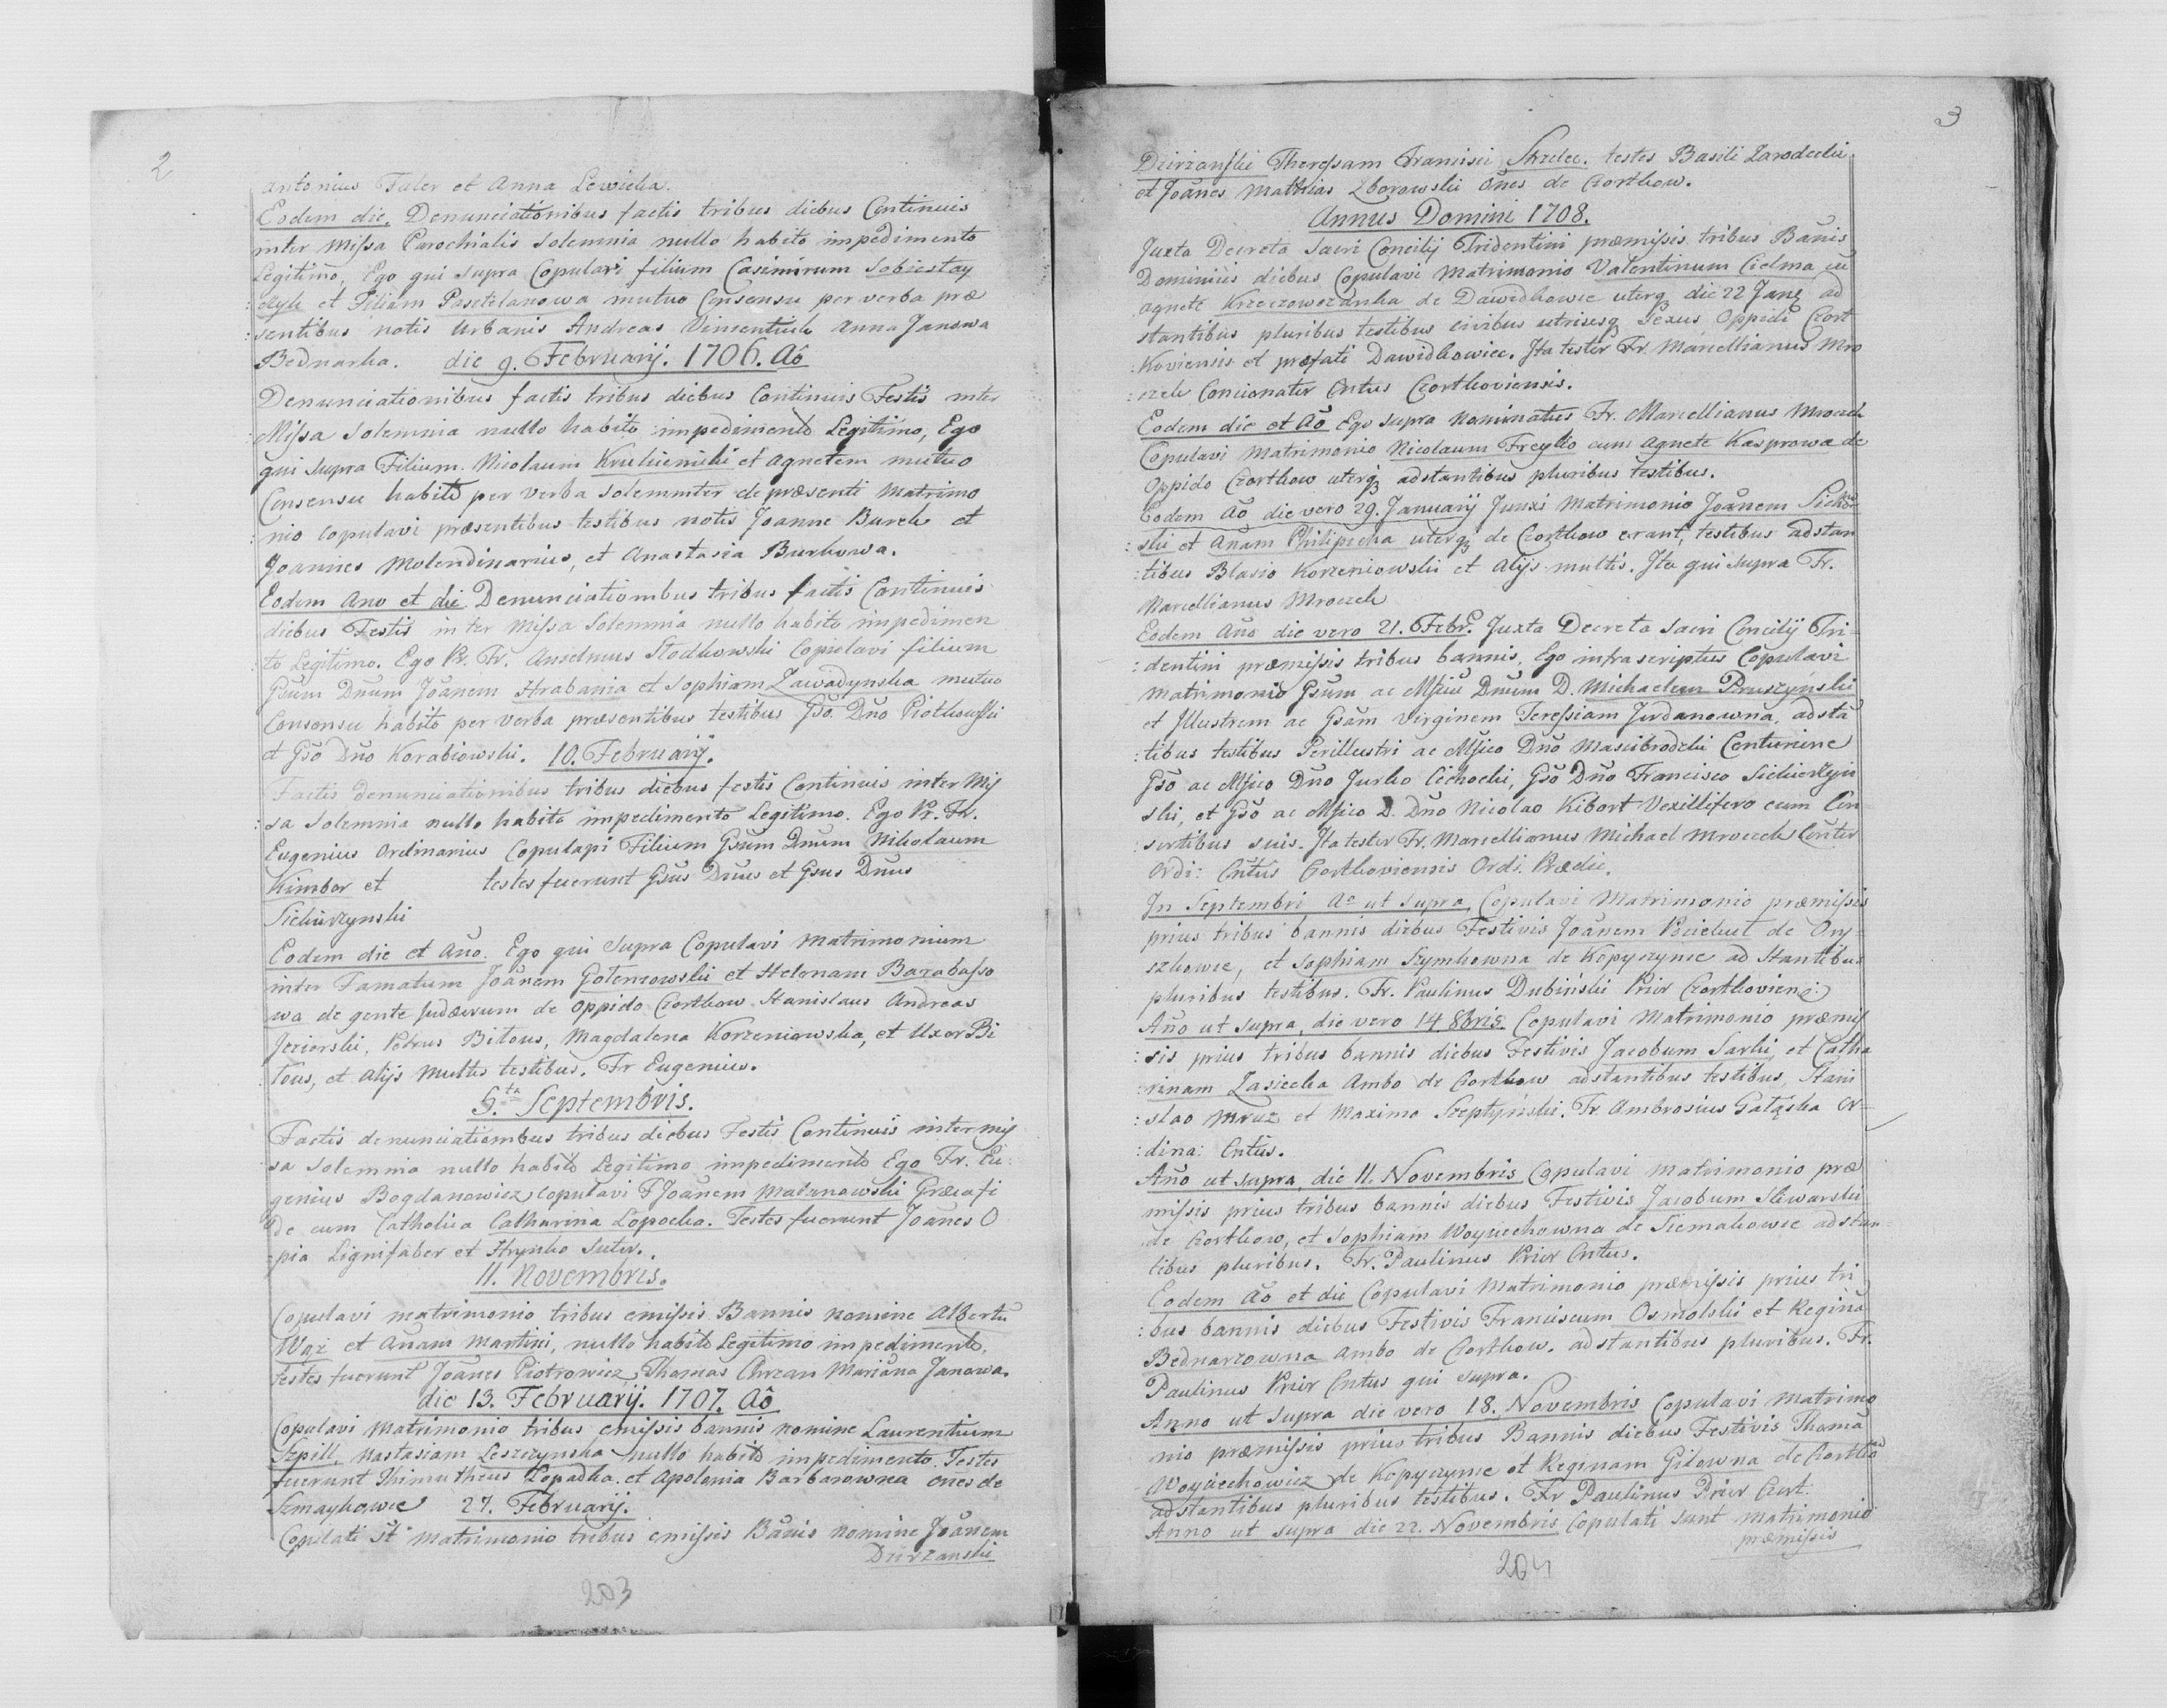 2
Antonius Faler et Anna Lewicka.
Eodem die, Denunciationibus factis tribus diebus Continuis
inter Missa Parochialis Solemnia nullo habito impedimento
Legitimo, Ego qui supra Copulavi filium Casimirum Sobiestay
et Filiam Pasetelanowa mutuo Consensu per verba præ
:sentibus notis Urbanis Andreas Vincentiich Anna Janowa
Bednarka. die 9. Februarij. 1706. Aô
Denunciationibus factis tribus diebus Continuis Festis inter
Missa Solemnia nullo habito impedimento Legitimo, Ego
qui supra Filium Nicolaum Krulicniki et Agnetem mutuo
Consensu habito per verba solemniter de præsenti Matrimo
:nio copulavi præsentibus testibus notis Joanne Burek et
Joannes Molendinarius, et Anastasia Burkowa.
Eodem Ano et die Denunciationibus tribus factis Continuis
diebus Festis inter Missa Solemnia nullo habito impedimen
:to Legitimo. Ego Pr. Fr. Anselmus Stodkowski Copulavi filium
Gsum Dnum Joānem Hrabania et Sophiam Zawadynska mutuo
Consensu habito per verba præsentibus testibus Gso. Dño Piotkowski
et Gso Dño Korabiowski. 10. Februarij.
Factis denunciationibus tribus diebus festis Continuis inter Mis
:sa Solemnia nullo habito impedimento Legitimo. Ego Pr. Fr.
Eugenius Ordinarius Copulavi Filium Gsum Dnum Nikolaum
Kimbor et testes fuerunt Gsus Dnus et Gsus Dnus
Siekierzynski
Eodem die et Año. Ego qui supra Copulavi Matrimonium
inter Famatum Joānem Golemowski et Helenam Barabasso
wa de gente Judæorum de Oppido Czortkow Stanislaus Andreas
Jezierski, Petrus Bitous, Magdalena Korzeniowska, et Uxor Bi
:tous, et Alijs Multis testibus. Fr Eugenius.
5.ta Septembris.
Factis denunciationibus tribus diebus Festis Continuis inter mis
:sa Solemnia nullo habito Legitimo impedimento Ego Fr. Eu
genius Bogdanowicz copulavi F Joānem Malinowski Græca fi
de cum Catholica Catharina Lopocka. Testes fuerunt Joānes O
:pia Lignifaber et Hrynko Sutor.
11. Novembris.
Copulavi matrimonio tribus emissis Bannis nomine Albertū
Waz et Anam Martini, nullo habito Legitimo impedimento,
testes fuerunt Joānes Piotrowicz, Thomas Chrzan Mariāna Janowa.
die 13. Februarij. 1707. Aô
Copulavi Matrimonio tribus emissis bannis nomine Laurentium
Szpill, Nastasiam Leszczynska nullo habito impedimento. Testes
fuerunt Thimutheus Lopadka. et Apolonia Barbarowna ones de
Szmaykowce 27. Februarij.
Copulati st Matrimonio tribus emissis Bānis nomine Joānem
Dzirzanski
203
3
Dzirzanski Theressam Francisci Strzelec. testes Basili Zarodecki
et Joānes Matthias Zborowski ōnes de Czortkow.
Annus Domini 1708.
Juxta Decreta Sacri Concilij Tridentini præmissis tribus Banis
Dominicis diebus Copulavi Matrimonio Valentinum Cielma cū
Agnete Krzeczowszanka de Dawidkowce uterq die 22 Janr ad
stantibus pluribus testibus civibus utriusq Sexus Oppidi Czort
:koviensis et præfati Dawidkowiec. Ita testor Fr. Marcellianus Mro
:czek Concionator Cntus Czortkoviensis.
Eodem die et Aô Ego supra nominatus Fr. Marcellianus Mroczek
Copulavi Matrimonio Nicolaum Freytko cum Agnete Kasprowa de
Oppido Czortkow uterq adstantibus pluribus testibus.
Eodem Aô die vero 29. Januarij Junxi Matrimonio Joānem Sicko
:ski et Anam Philipicka uterq de Czortkow erant, testibus adstan
:tibus Blasio Korzeniowski et Alijs multis. Ita qui supra Fr.
Marcellianus Mroczek
Eodem Año die vero 21. Febr. Juxta Decreta Sacri Concilij Tri=
:dentini præmissis tribus bannis, Ego infrascriptus Copulavi
Matrimonio Gsum ac Mficū Dnum D. Michaelem Pruszynski
et Illustrem ac Gsam Virginem Teressiam Jurdanowna, adstā
:tibus testibus Perillustri ac Mfico Dno Mascibrodzki Centurine
Gso ac Mfico Dno Jurko Cichocki, Gso Dno Francisco Siekierzyn
ski, et Gso ac Mfico D. Dno Nicolao Kibort Vexillifero cum Con
:sortibus suis. Ita testor Fr. Marcellianus Michael Mroczek Conter
Ordi: Cntus Czortkoviensis Ordi. Prædic.
In Septembri Ao ut Supra, Copulavi Matrimonio præmissis
prius tribus bannis diebus Festivis Joānem Pociekut de Ory=
szkowce, et Sophiam Szymkowna de Kopyczynce adstantibus
pluribus testibus. Fr. Paulinus Dubiński Prior Czortkoviens:
Año ut supra, die vero 14 8bris. Copulavi Matrimonio præmis
:sis prius tribus bannis diebus Festivis Jacobum Sarki et Catha
:rinam Zasiecka Ambo de Czortkow adstantibus testibus, Stani
:slao Mruz et Maximo Szeptyński. Fr. Ambrosius Gałąska Or=
:dina: Cntus.
Año ut supra, die 11. Novembris Copulavi matrimonio præ
missis prius tribus bannis diebus Festivis Jacobum Sliwarski
de Czortkow, et Sophiam Woyciechowna de Siemakowce adstan=
tibus pluribus. Fr. Paulinus Prior Cntus.
Eodem Aô et die Copulavi Matrimonio præmissis prius tri
:bus bannis diebus Festivis Franciscum Osmolski et Reginā
Bednarzowna Ambo de Czortkow. adstantibus pluribus. Fr.
Paulinus Prior Cntus qui supra.
Anno ut supra die vero 18. Novembris Copulavi Matrimo
nio præmissis prius tribus Bannis diebus Festivis Thomā
Woyciechowicz de Kopyczynce et Reginam Gilowna de Czortko
adstantibus pluribus testibus. Fr Paulinus Prior Czort.
Anno ut supra die 22. Novembris Copulati sunt matrimonio
præmissis
204